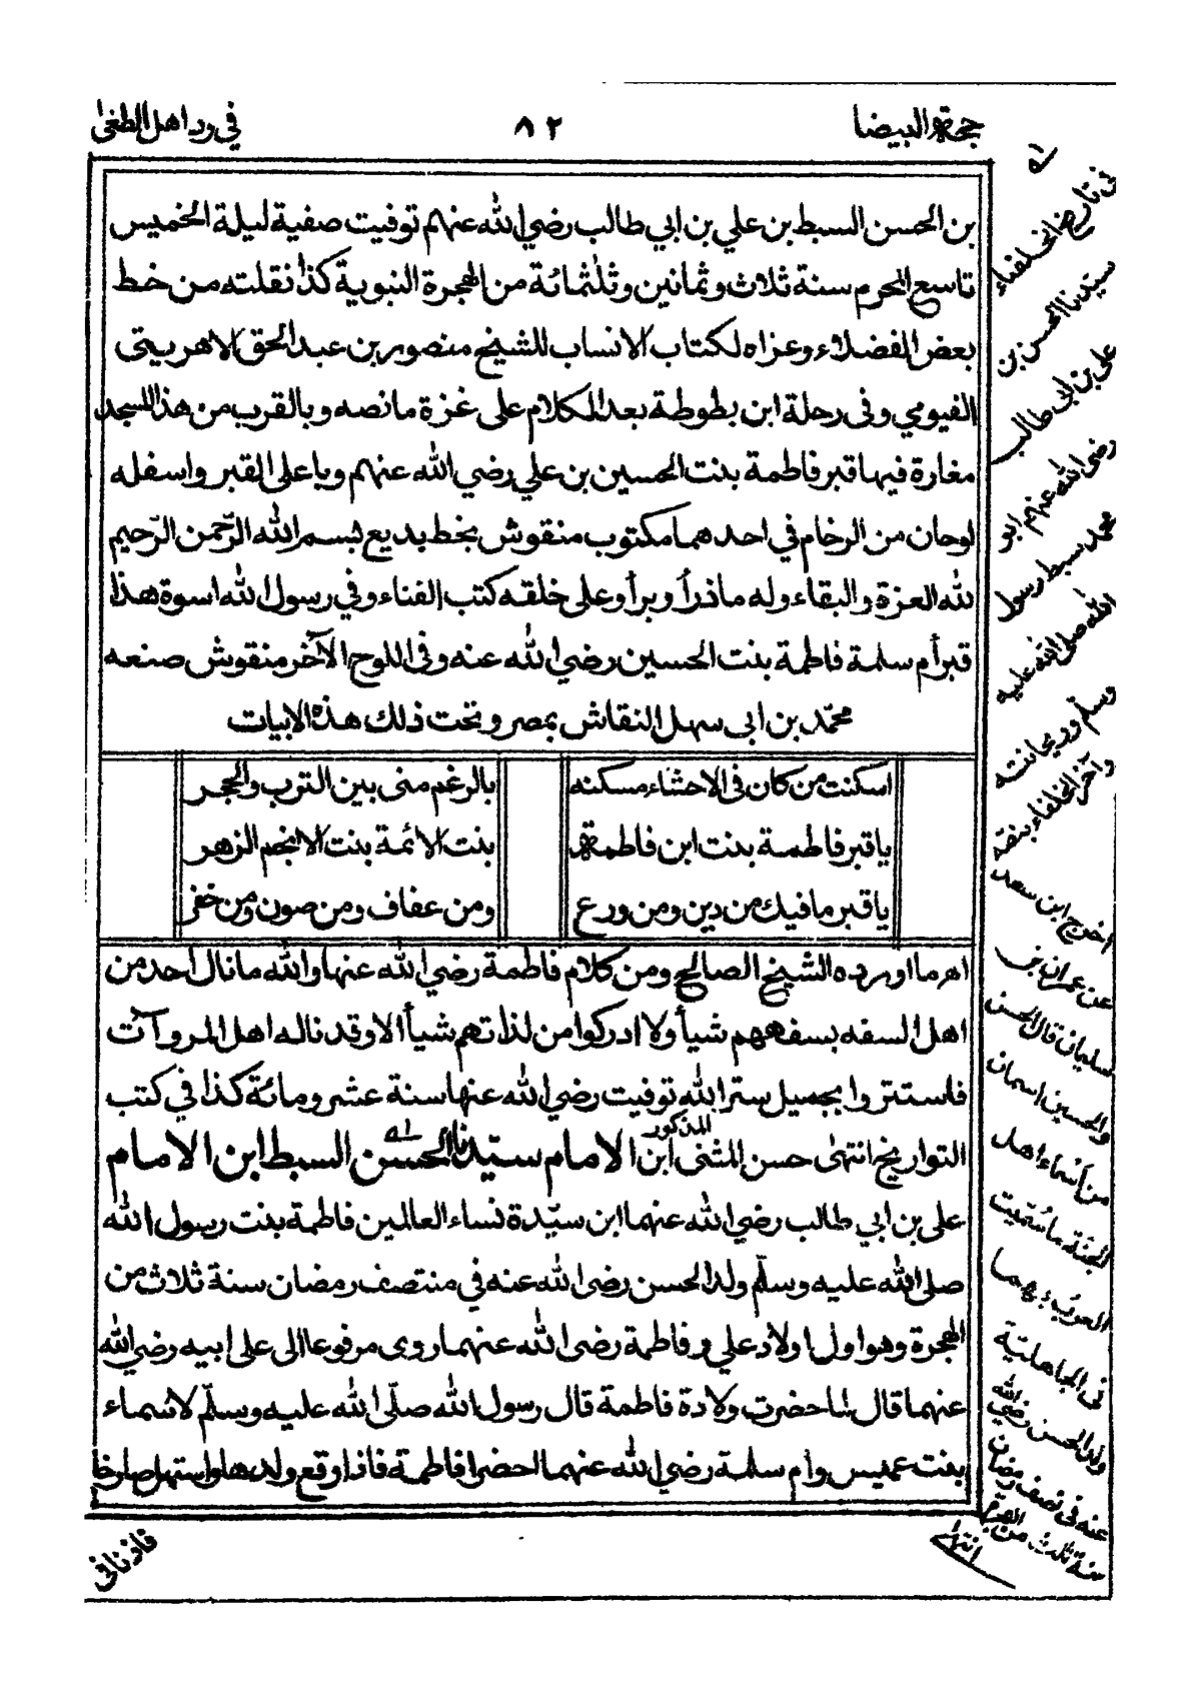 حجة البيضا
٨٢
في رد اهل الطغى
بن الحسن السبط بن علي بن ابي طالب رضي الله عنهم توفيت صفية ليلة الخميس
تاسع المحرم سنة ثلاث وثمانين وثلثمائة من الهجرة النبوية كذا نقلته من خط
بعض الفضلاء وعزاه لكتاب الانساب للشيخ منصور بن عبد الحق الاهريتى
الفيومي وفى رحلة ابن بطوطة بعد الكلام على غزة ما نصه وبالقرب من هذا المسجد
مغارة فيها قبر فاطمة بنت الحسين بن علي رضي الله عنهم وباعلى القبر واسفله
لوحان من الرخام في احدهما مكتوب منقوش بخط بديع بسم الله الرّحمن الرّحيم
لله العزة والبقاء وله ما ذرأ وبرأ وعلى خلقه كتب الفناء وفي رسول الله اسوة هذا
قبر أم سلمة فاطمة بنت الحسين رضي الله عنه وفى اللوح الآخر منقوش صنعه
محمّد بن ابى سهل النقاش بمصر وتحت ذلك هذه الابيات
اسكنت من كان فى الاحشاء مسكنه بالرغم منى بين الترب والحجر
يا قبر فاطمة بنت ابن فاطمة بنت الائمة بنت الانجم الزهر
يا قبر ما فيك من دين ومن ورع ومن عفاف ومن صون ومن خفر
اهـ ما اورده الشيخ الصالح ومن كلام فاطمة رضي الله عنها والله ما نال احد من
اهل السفه بسفههم شيأ ولا ادركوا من لذاتهم شيأ الا وقد ناله اهل المروآت
فاستتروا بجميل ستر الله توفيت رضي الله عنها سنة عشر ومائة كذا في كتب
التواريخ انتهى حسن المثنى المذكور ابن الامام سيّدنا الحسن السبط ابن الامام
على بن ابي طالب رضي الله عنهما ابن سيّدة نساء العالمين فاطمة بنت رسول الله
صلى الله عليه وسلّم ولد الحسن رضى الله عنه في منتصف رمضان سنة ثلاث من
الهجرة وهو اول اولاد علي وفاطمة رضى الله عنهما روى مرفوعا الى على ابيه رضي الله
عنهما قال لما حضرت ولادة فاطمة قال رسول الله صلّى الله عليه وسلّم لاسماء
بنت عميس وام سلمة رضي الله عنهما احضرا فاطمة فاذا وقع ولدها واستهل صارخا
فاذنا فى
فى تاريخ الخلفاء
سيدنا الحسن بن
على بن ابى طالب
رضى الله عنهم ابو
محمد سبط رسول
الله صلى الله عليه
وسلّم وريحانته
وآخر الخلفاء بنصه
اخرج ابن سعد
عن عمران بن
سليمان قال الحسن
والحسين اسمان
من أسماء اهل
الجنة ما سُمّيت
العرب بهما
فى الجاهليّة
ولد الحسن رضي الله
عنه فى نصف رمضان
سنة ثلاث من الهجرة
انتهى